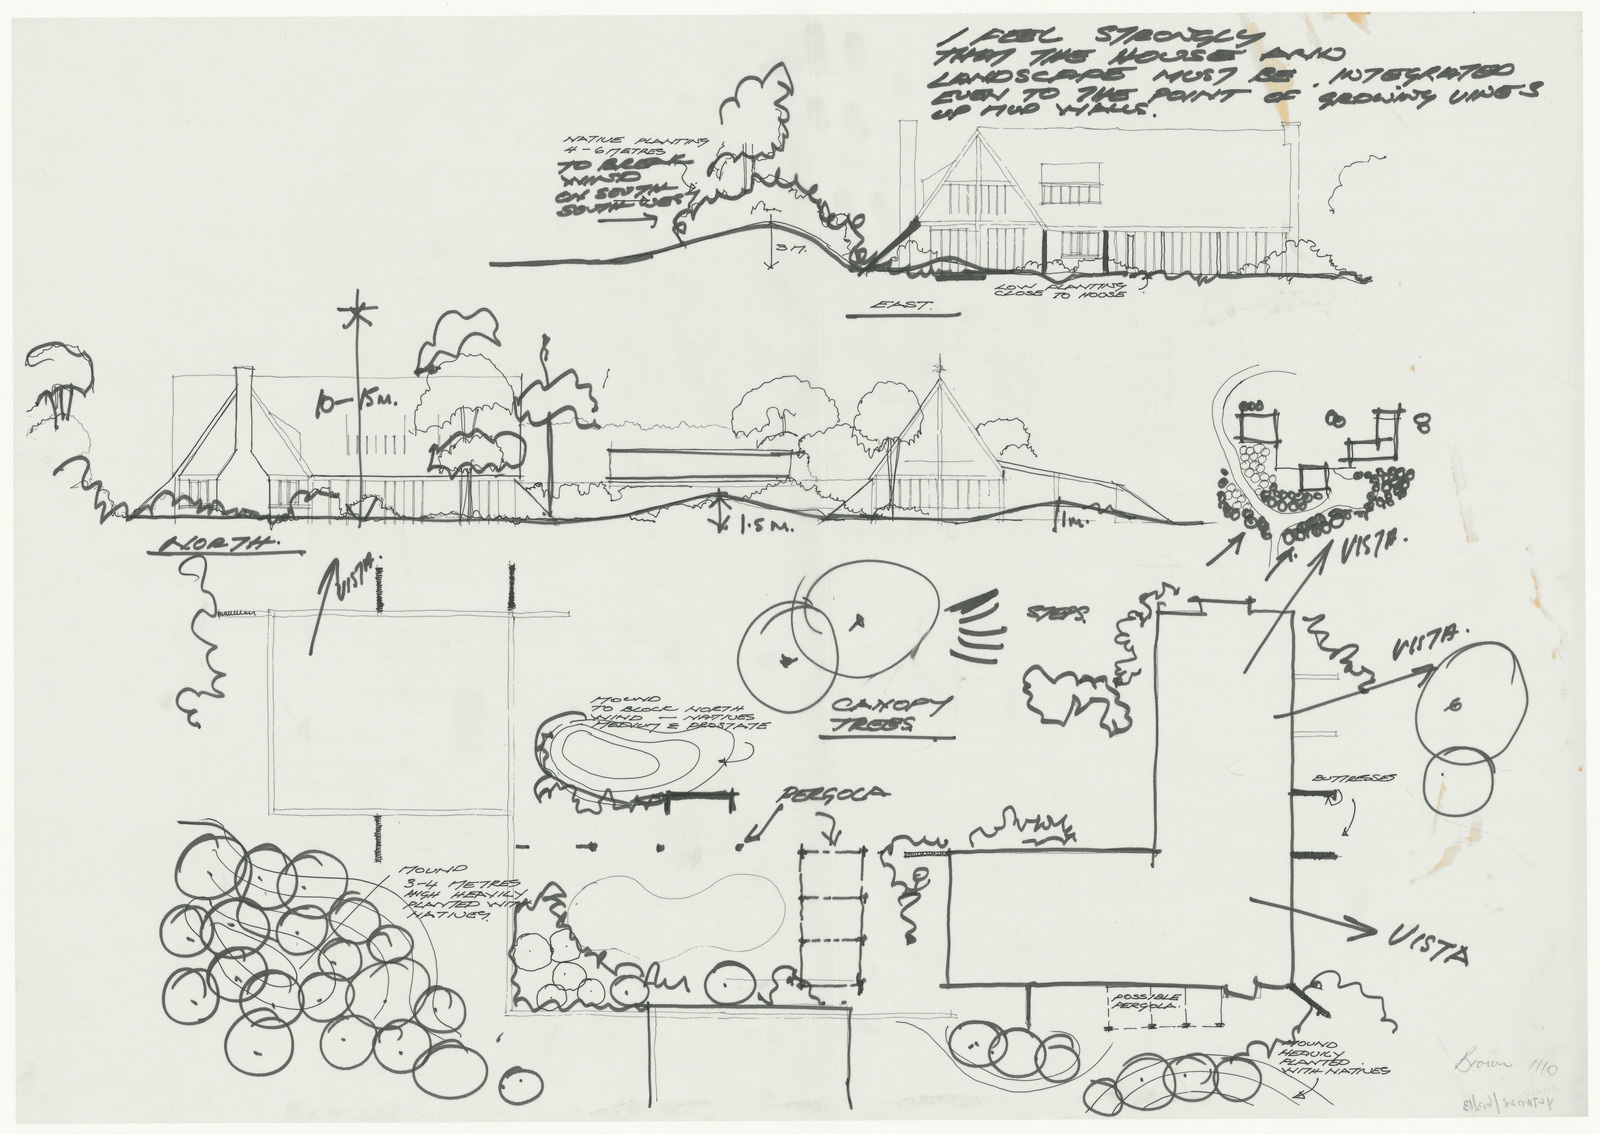 I FEEL STRONGLY
THAT THE HOUSE AND
LANDSCAPE MUST BE INTEGRATED
EVEN TO THE POINT OF GROWING VINES
UP MUD WALLS.
NATIVE PLANTING
4-6 METRES
TO BREAK
WIND
ON SOUTH
SOUTH WEST
3M.
LOW PLANTING
CLOSE TO HOUSE
EAST.
10-15M.
1.5M.
1M.
NORTH.
VISTA.
VISTA.
STEPS.
VISTA.
MOUND
TO BLOCK NORTH
WIND — NATIVES
MEDIUM & PROSTATE
CANOPY
TREES
BUTTRESSES
PERGOLA
MOUND
3-4 METRES
HIGH HEAVILY
PLANTED WITH
NATIVES.
VISTA
POSSIBLE
PERGOLA.
MOUND
HEAVILY
PLANTED
WITH NATIVES
Brown 1110